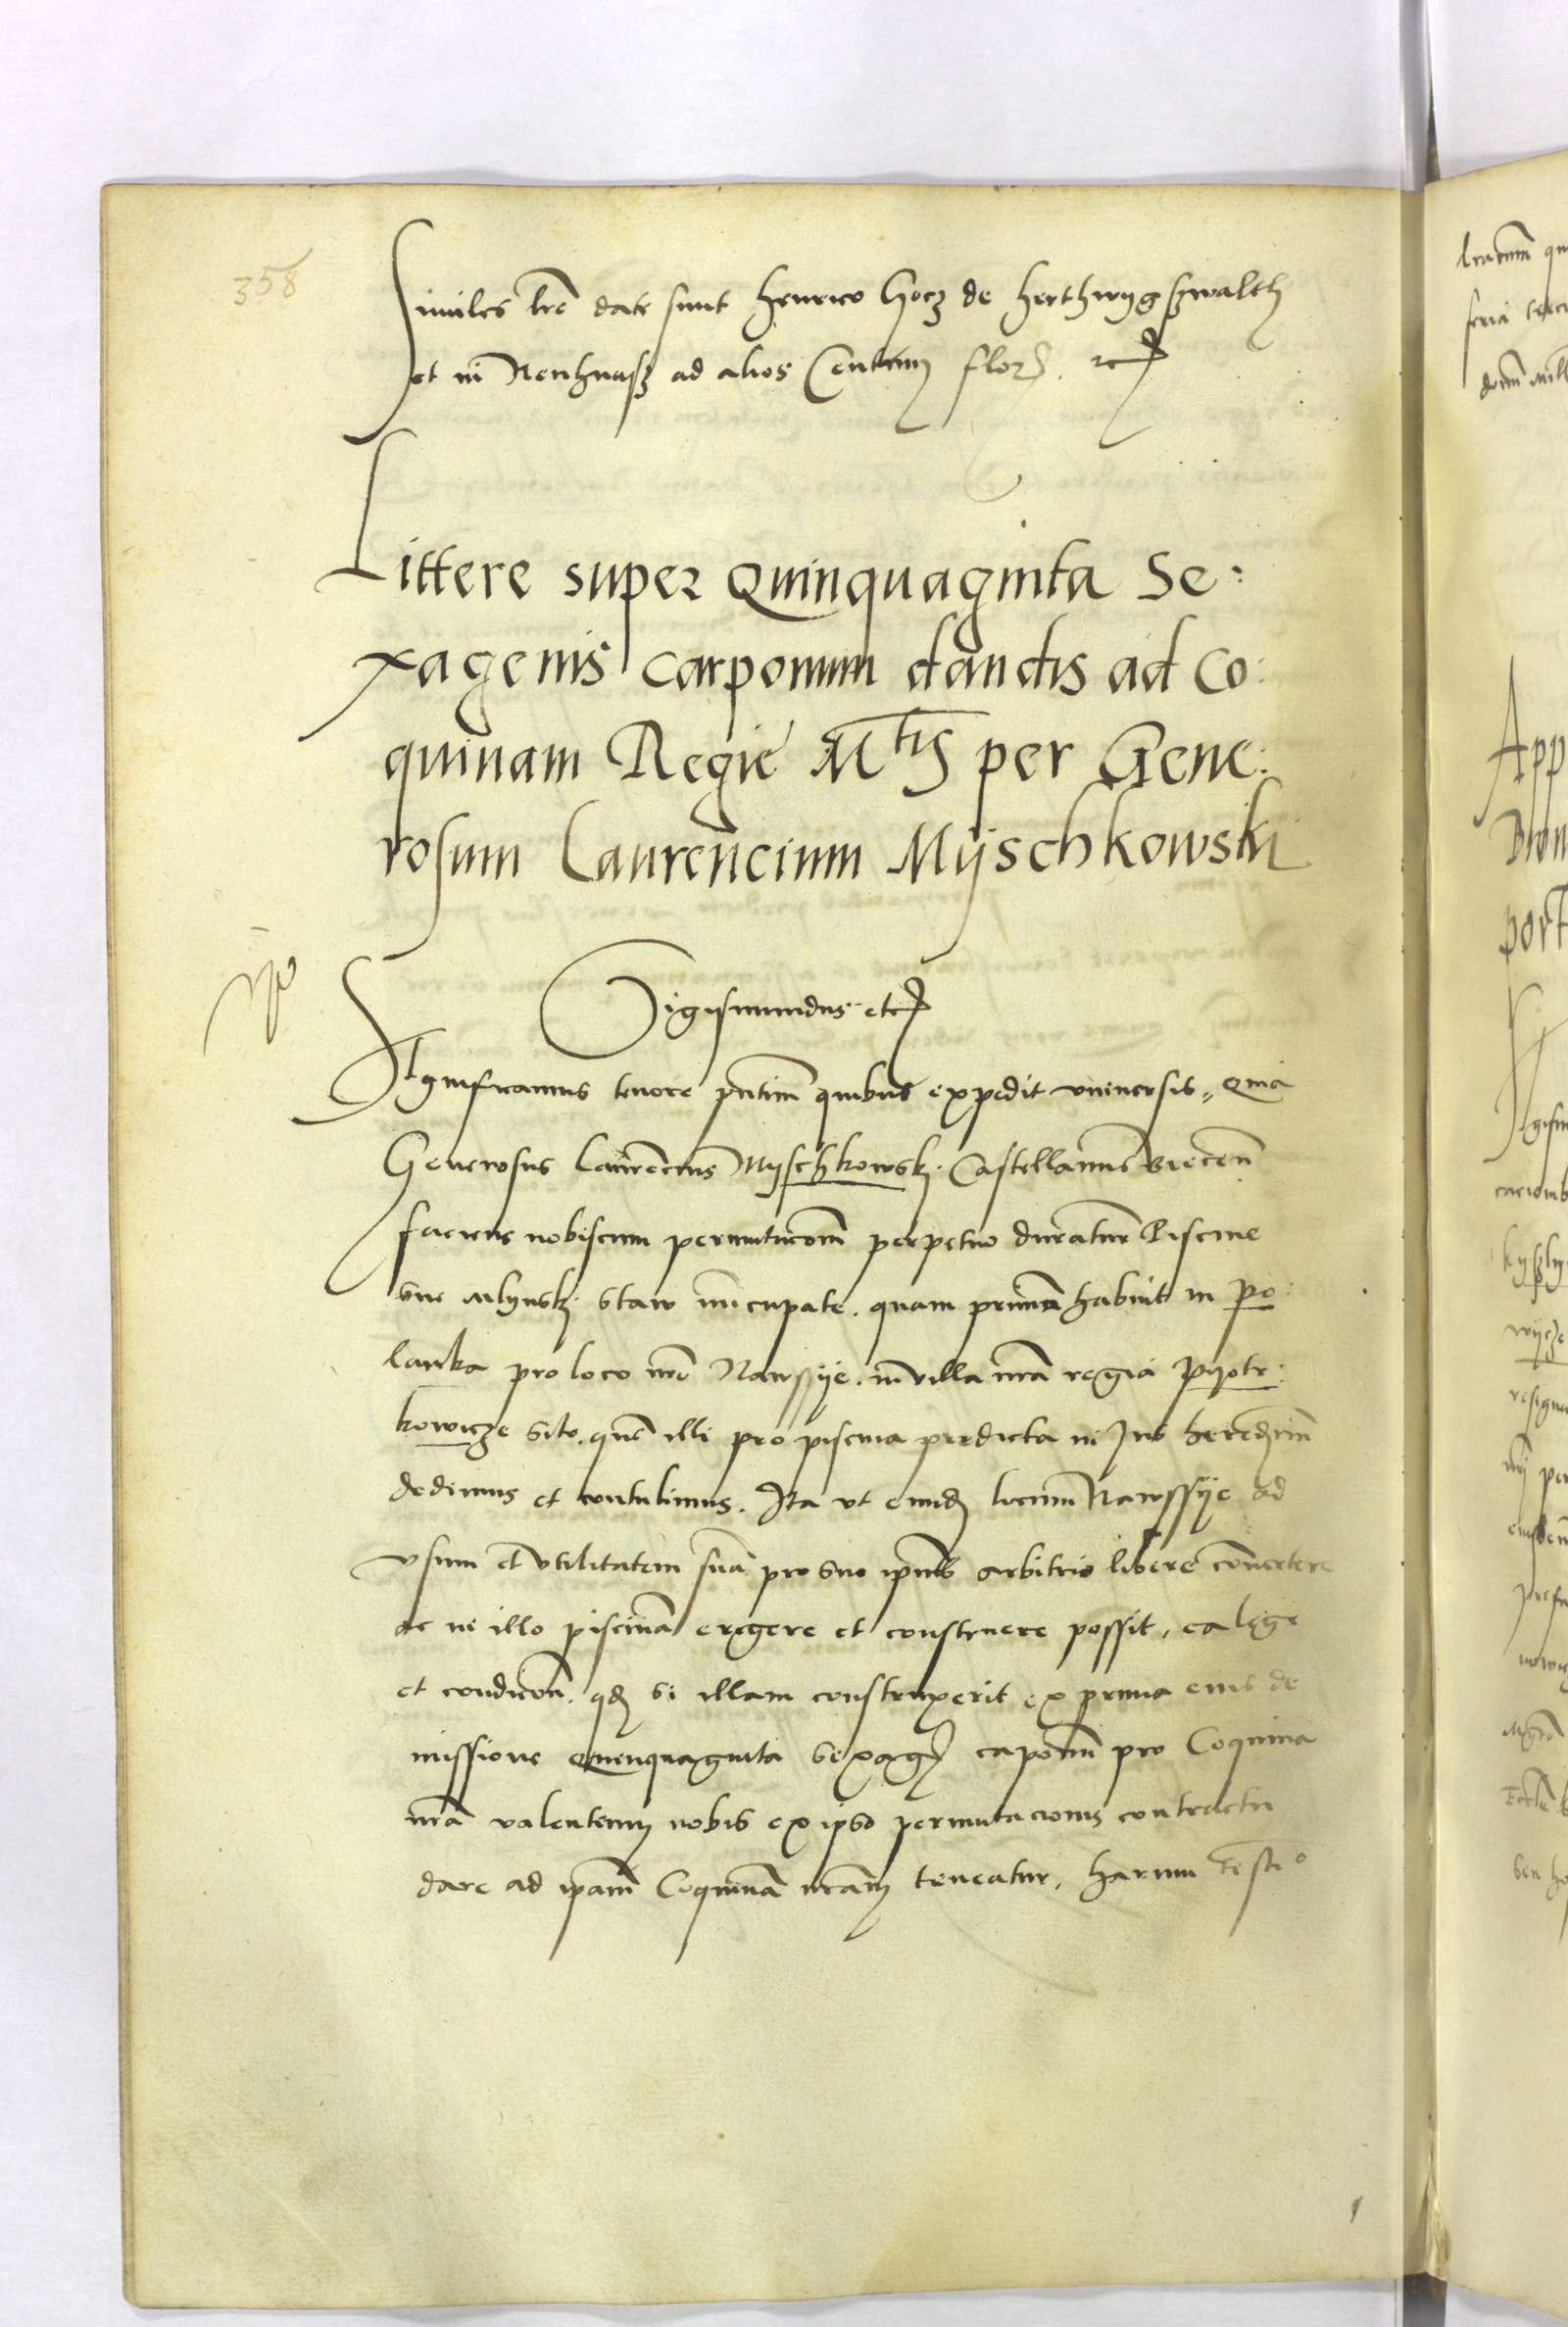 358
Similes lrẽ date sunt Henrico Gocz de Herthwygszwalth
et in Neuhuasz ad alios Centum flor. etc
Littere super Quinquaginta Se:
xagenis carponum dandis ad co:
quinam Regie Mtis per Gene:
rosum Laurencium Myschkowski
Sigismundus etc
Significamus tenore pñtim quibus expedit vniuersis, Quia
Generosus Laurẽcius Myschkowski Castellanus Biecen̄
faciens nobiscum permutacõm perpetuo duratur Piscine
sue Mlynski staw nũcupate. quam primã habuit in Po:
lanka pro loco nrõ Nawssye. in villa nrã regia Pyotr:
kowicze sito. quẽ illi pro piscina predicta in Jus hereditariũ
dedimus et contulimus. Ita vt eundẽ locum Nawssye ad
vsum et vtilitatem suã pro suo ipius arbitrio libere cõuertere
ac in illo piscinã erigere et construere possit, ea lege
et condicõn. qđ si illam construxerit ex prima eius de
missione quinquaginta sexagẽ caponũ pro Coquina
nrã valentem nobis ex ipso permutacionis contractu
dare ad ipam̃ Coquinã nrãm teneatur. harum testio